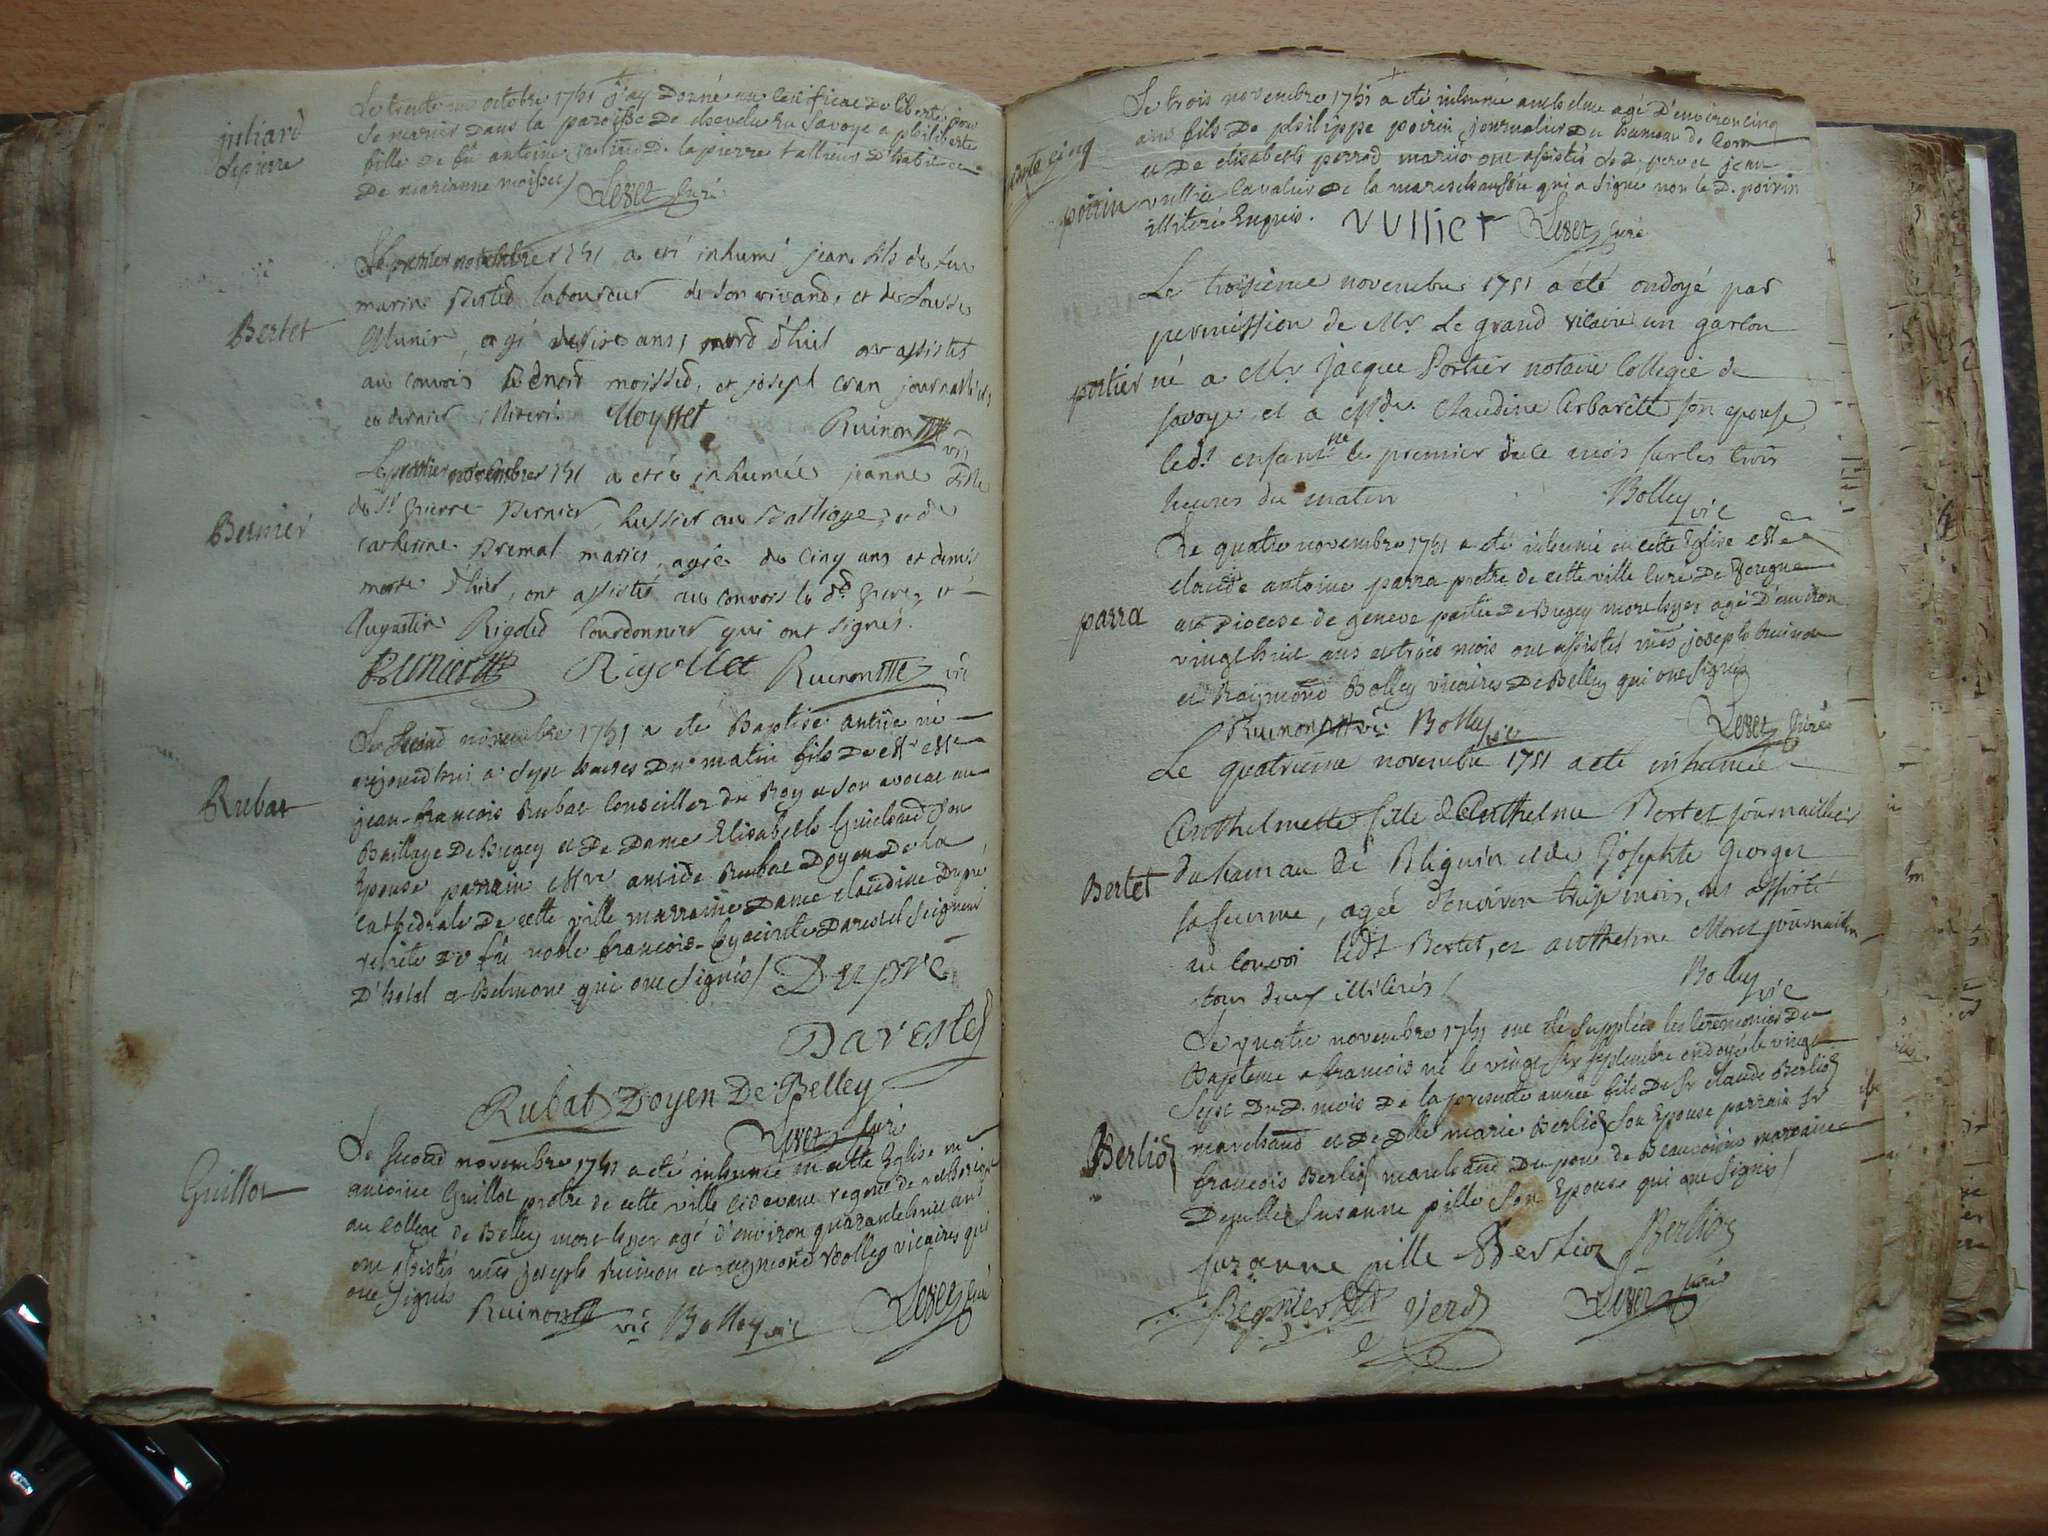 juliard
Le trente un octobre 1751 j'ay donné un certificat de liberté pour
se marier dans la paroisse de chevelu en Savoye a philiberte
fille de fû antoine juliard
de marianne moisset / Levet Curé
Bertet
Le premier novembre 1751 a eté inhumé jean fils de feu
laboureur de son vivand, et de Louise
Munir, agé de seise ans, mord d'hui ont assistes
au convois Benoit moissed, et joseph cran journalliers
ce dernier illiteré. Moysset Ruinon
Bernier
Le premier novembre 1751 a etée inhumée jeanne fille
de Sr pierre Bernier, huissier au Balliage, et de
catherine Premat mariés, agée de cinq ans et demis
morte d'hier, ont assistés au convois le dd pierre, et
Augustin Rigoled Courdonnier qui ont signés.
Bernier Rigollet Ruinon vic
Rubat
Le second novembre 1751 a eté Baptisé né
aujourdhui a sept heures du matin fils de
jean-françois Rubat Conseiller du Roy et son avocat au
Baillage De Bugey et De Dame Elisabeth Guilland Son
Epouse parrain Mre Rubat Doyen De la
Cathedrale De cette ville marraine Dame claudine Dupré
de fû noble françois-hyacinte Darestel Seigneur
D'hotel et Belmont qui ont signés / Dupré
Darestel
Rubat Doyen De Belley
Levet Curé
Guillot
Le second novembre 1751 a eté inhumé en cette Eglise mre
antoine Guillot prètre de cette ville cidevant regent de
au college de Belley mort hyer agé d'environ quarantehuit ans
ont assistés mres joseph Ruinon et raymond Bolley vicaires qui
ont signés Ruinon vic Bolley vic Levet Curé
poirin
Le trois novembre 1751 a eté inhumé anthelme agé D'environ cinq
ans fils De philippe poirin journalier du hameau de
et De elisabeth perrod mariés ont assistés le D. pere et jean
vullier Cavalier de la marechaussée qui a signé non le D. poirin
illiteré Enquis. VUllieT Levet Curé
portier
Le troisieme novembre 1751 a eté ondoyé par
permission de Mr Le grand vicaire un garson
né a Mr Jacque Portier notaire Collegié de
savoye et a Mde Claudine Carbarète son epouse
ledt enfant né le premier du ce mois sur les trois
heures du matin Bolley vic
parra
Le quatre novembre 1751 a eté inhumé en cette Eglise
claude antoine parra pretre de cette ville Curé De
au Diocese de geneve partie De Bugey mort hyer agé D'environ
vingt huit ans et trois mois ont assistés mres joseph Ruinon
et Raymond Bolley vicaires De Belley qui ont signés
Ruinon vic Bolley vic Levet Curé
Bertet
Le quatrieme novembre 1751 a eté inhumée
Anthelmette fille d'Anthelme Bertet journallier
du hamau de Bliguin et de Josephte Georget
sa femme, agée d'environ treise mois, ont assisté
au convoi ledt Bertet, et anthelme Moret journallier
tous deux illiterés / Bolley vic
Berlioz
Le quatre novembre 1751 ont eté supplées les ceremonies Du
Bapteme a françois né le vingt six septembre ondoyé le vingt
sept Du D. mois De la presente année fils De Sr claude Berlioz
marchand et De Dlle marie Berlioz son Epouse parrain Sr
françois Berlioz marchand Du pont de Beauvoisin marraine
Demlle Susanne pille son Epouse qui ont signés /
Suzanne pille Berlioz Berlioz
Begnier Levet Curé